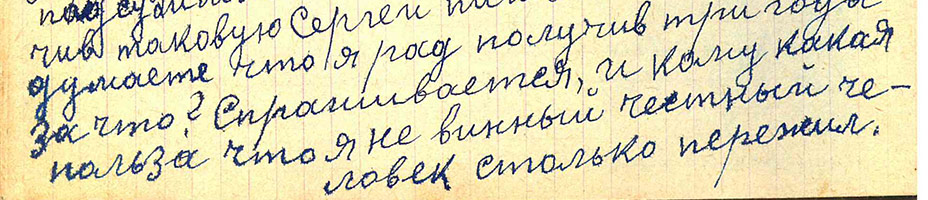 чив таковую Сергей
думаете что я рад получив три годы
за что? Спрашивается, и кому какая
польза что я не винный честный че-
ловек столько пережил.